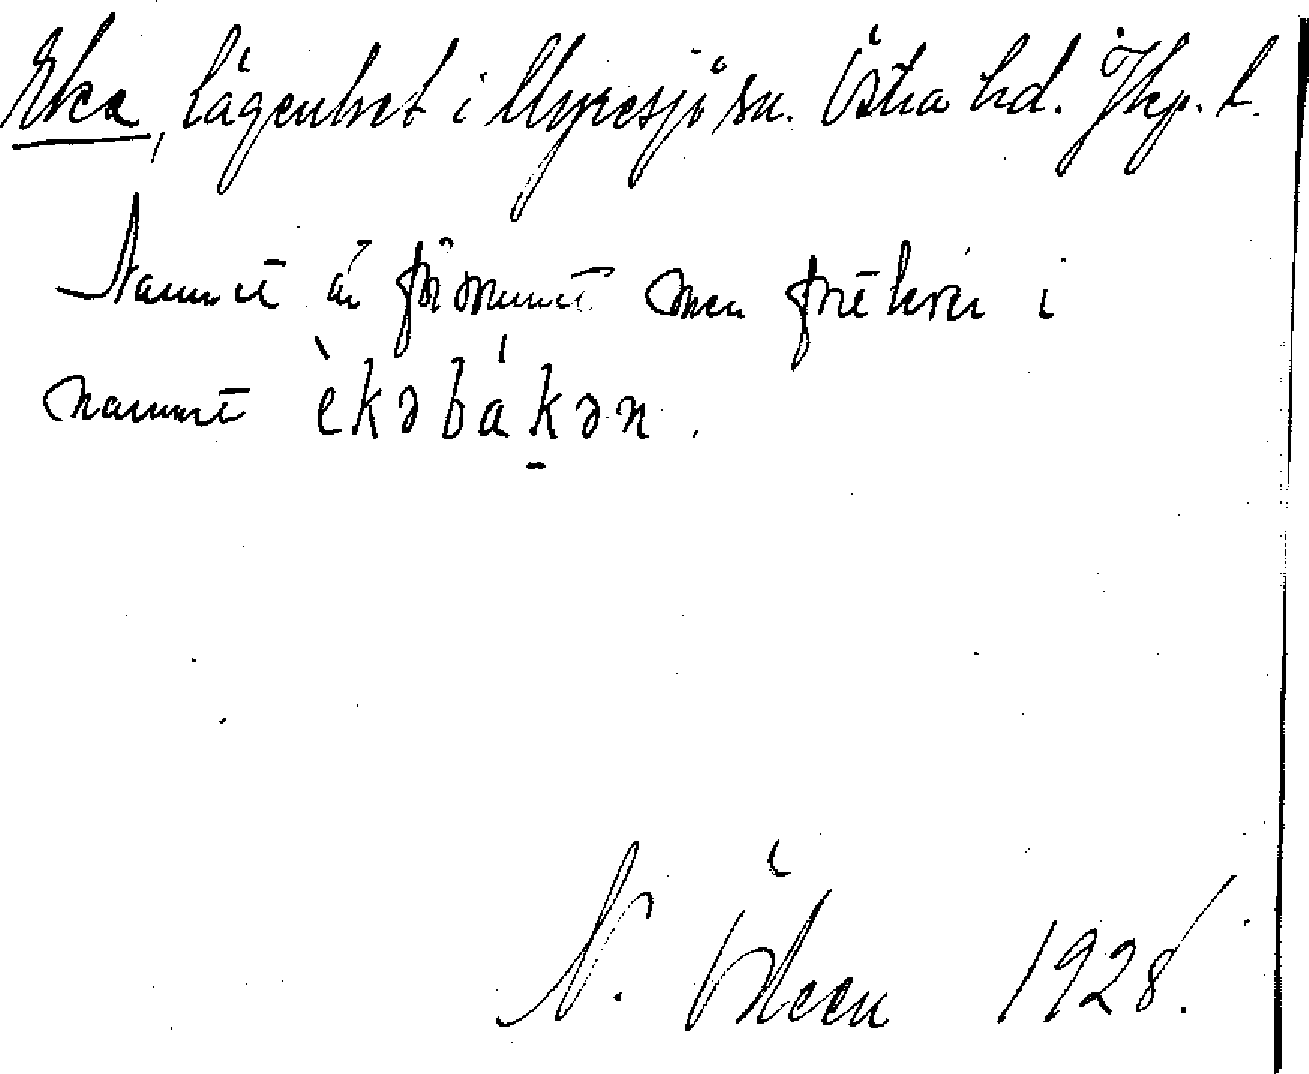 Eka, lägenhet i Myresjö sn. Östra hd. Jkp. l.
Namnet är försvunnet men fortlever i
namnet èkəbákən.
N. Ödeen 1928.